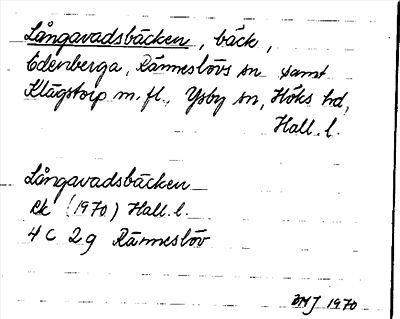 Långavadsbäcken, bäck,
Edenberga, Ränneslövs sn samt
Klägstorp m.fl., Ysby sn, Höks hd,
Hall. l.
Långavadsbäcken
ek (1970) Hall. l.
4 C 2 g Ränneslöv
1970